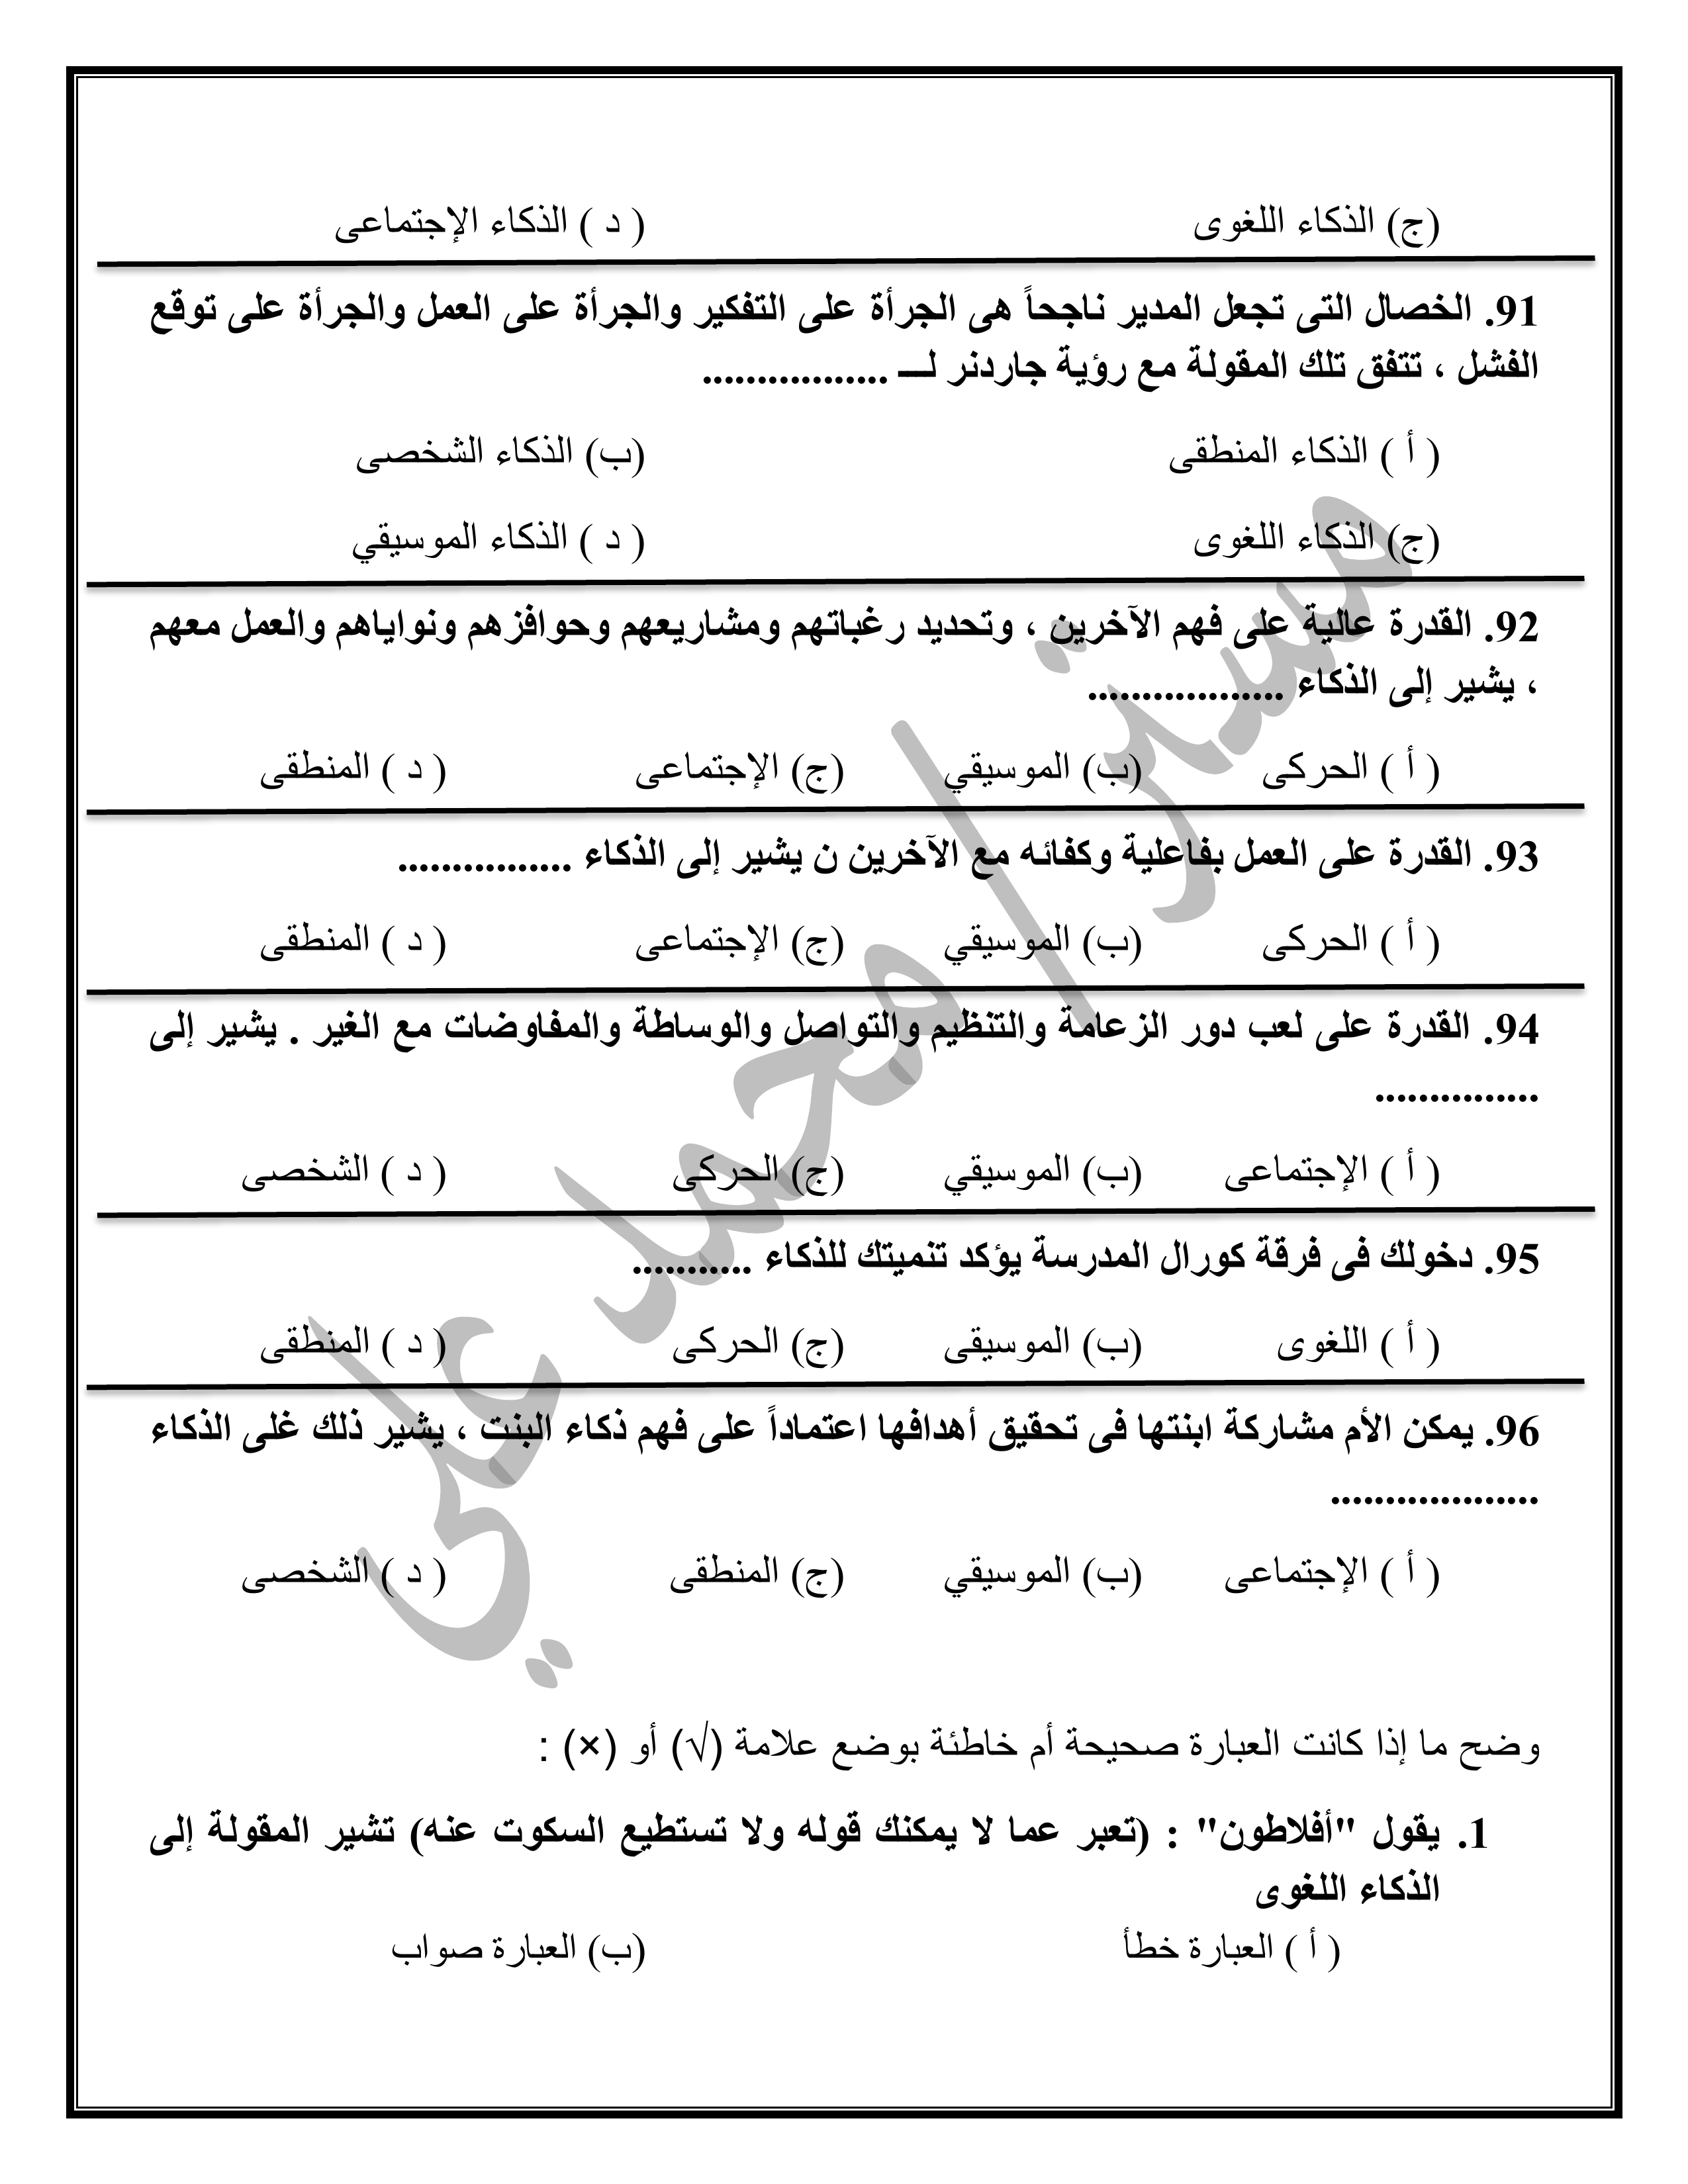 (ج) الذكاء اللغوى ( د ) الذكاء الإجتماعى
91. الخصال التى تجعل المدير ناجحاً هى الجرأة على التفكير والجرأة على العمل والجرأة على توقع
الفشل ، تتفق تلك المقولة مع رؤية جاردنر لـــ .................
( أ ) الذكاء المنطقى (ب) الذكاء الشخصى
(ج) الذكاء اللغوى ( د ) الذكاء الموسيقي
92. القدرة عالية على فهم الآخرين ، وتحديد رغباتهم ومشاريعهم وحوافزهم ونواياهم والعمل معهم
، يشير إلى الذكاء ..................
( أ ) الحركى (ب) الموسيقي (ج) الإجتماعى ( د ) المنطقى
93. القدرة على العمل بفاعلية وكفائه مع الآخرين ن يشير إلى الذكاء ................
( أ ) الحركى (ب) الموسيقي (ج) الإجتماعى ( د ) المنطقى
94. القدرة على لعب دور الزعامة والتنظيم والتواصل والوساطة والمفاوضات مع الغير . يشير إلى
...............
( أ ) الإجتماعى (ب) الموسيقي (ج) الحركى ( د ) الشخصى
95. دخولك فى فرقة كورال المدرسة يؤكد تنميتك للذكاء ...........
( أ ) اللغوى (ب) الموسيقى (ج) الحركى ( د ) المنطقى
96. يمكن الأم مشاركة ابنتها فى تحقيق أهدافها اعتماداً على فهم ذكاء البنت ، يشير ذلك غلى الذكاء
...................
( أ ) الإجتماعى (ب) الموسيقي (ج) المنطقى ( د ) الشخصى
وضح ما إذا كانت العبارة صحيحة أم خاطئة بوضع علامة (√) أو (×) :
1. يقول "أفلاطون" : (تعبر عما لا يمكنك قوله ولا تستطيع السكوت عنه) تشير المقولة إلى
الذكاء اللغوى
( أ ) العبارة خطأ (ب) العبارة صواب
مستر/ محمد علي